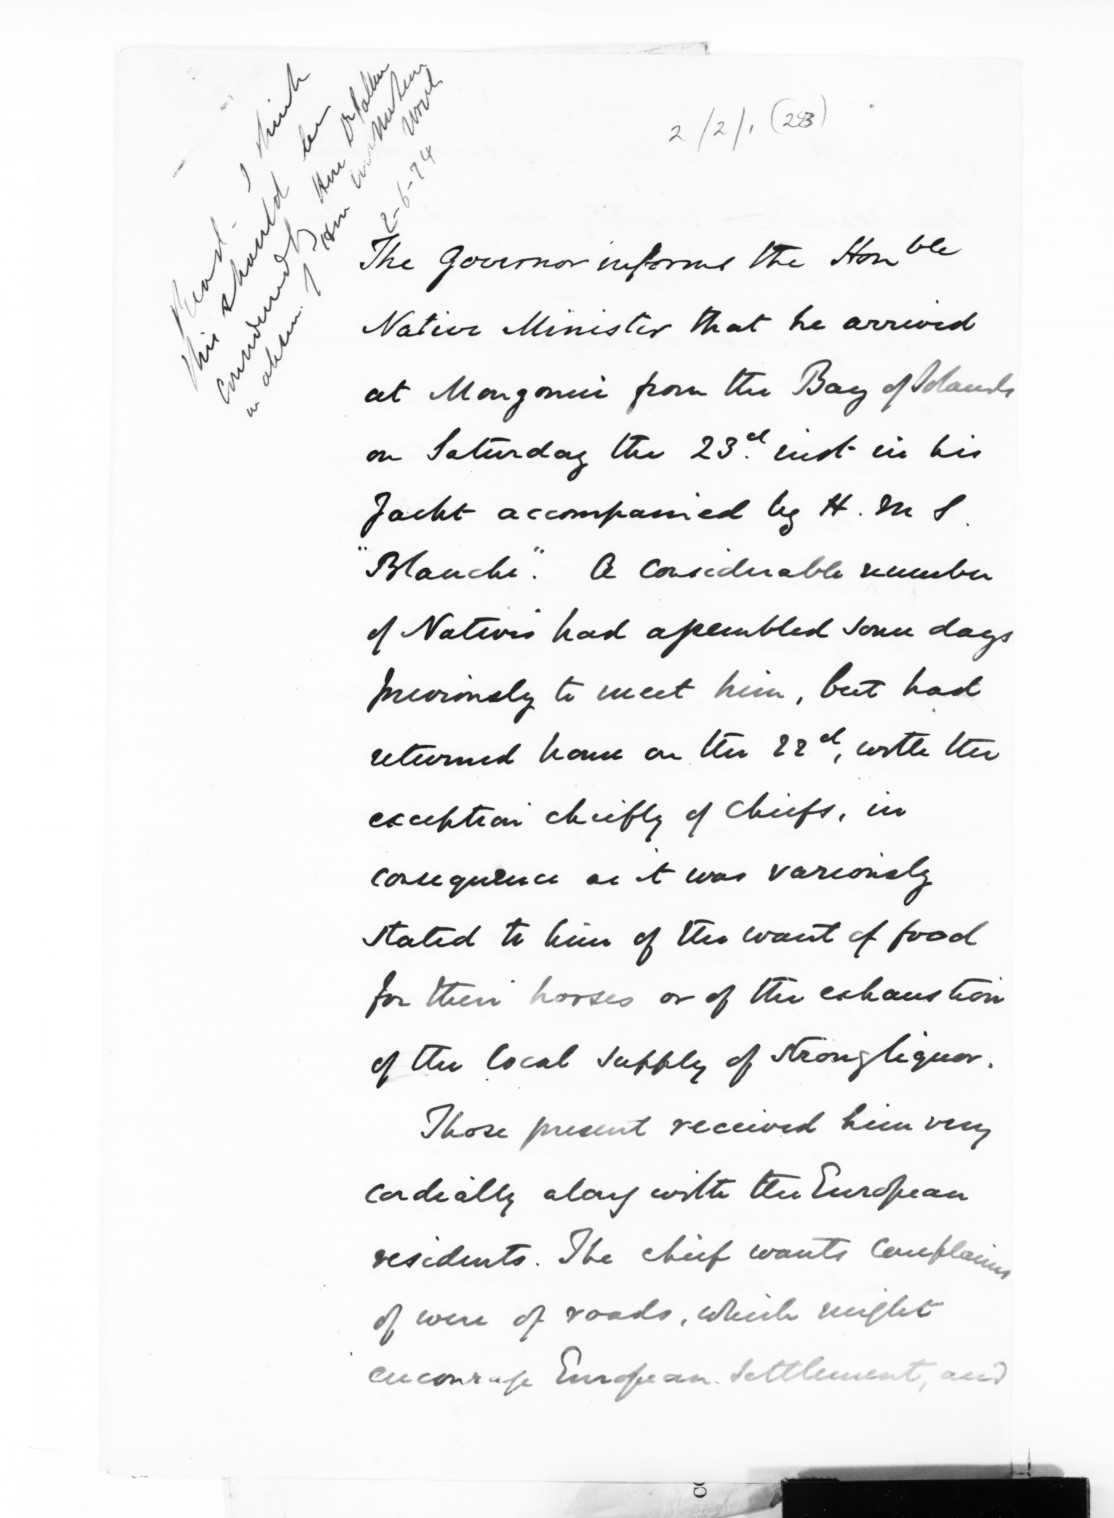 2/2/1 (283)
Read. I think
this should be
considered by Hon Dr Pollen
in absence of Hon Native Minister
2-6-74
The Governor informs the Honble
Native Minister that he arrived
at Mongonui from the Bay of Islands
on Saturday the 23d. inst in his
Yacht accompanied by H. M S.
"Blanche". A considerable number
of Natives had assembled some days
previously to meet him, but had
returned home on the 22d, with the
exception chiefly of Chiefs, in
consequence as it was variously
stated to him of the want of food
for their horses or of the exhaustion
of the local supply of strong liquor.
Those present received him very
cordially along with the European
residents. The chief wants complained
of were of roads, which might
encourage European settlement, and